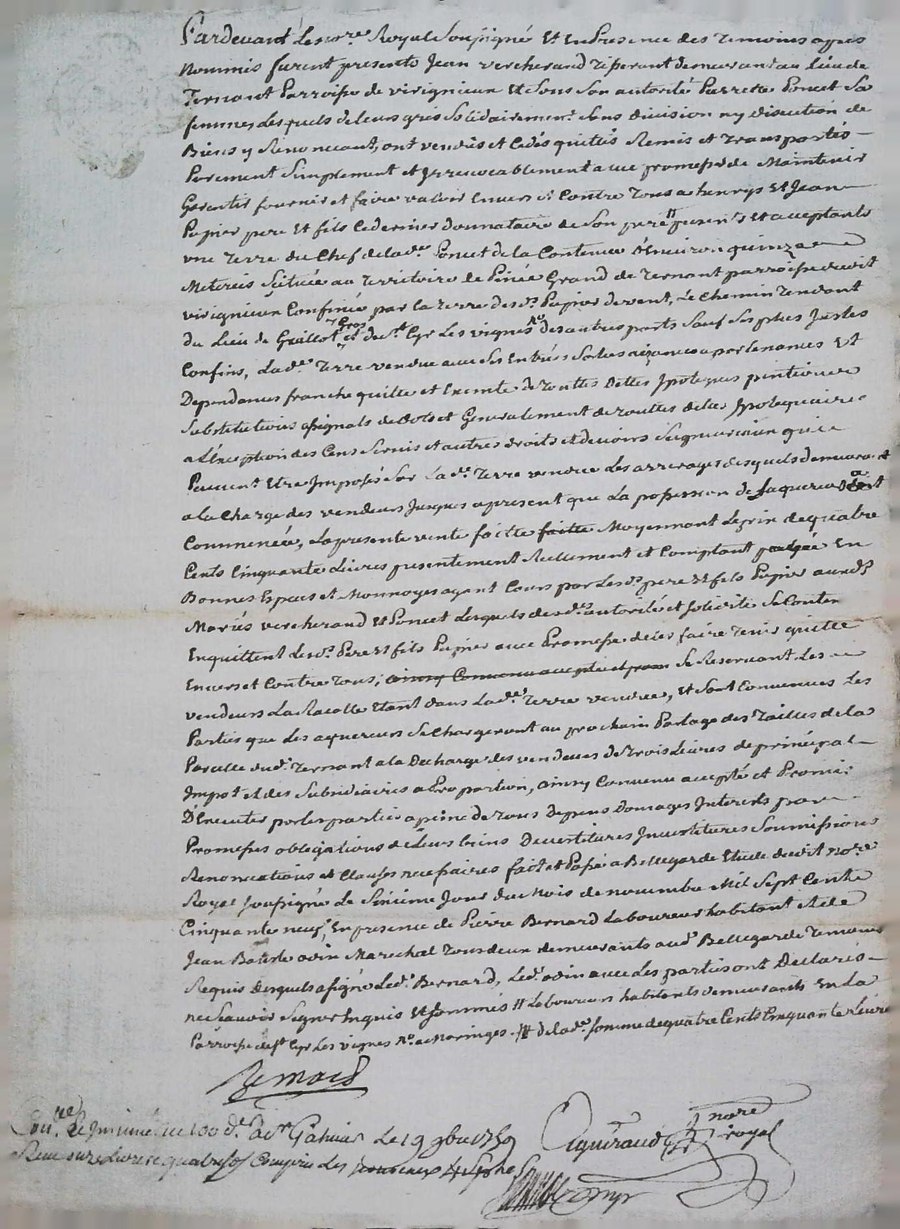 Pardevant Le no.re Royal Soussigné Et En Presence des Temoins apres
nommés furent presents Jean vercherand Tisserant demeurant au lieu de
Ternant Parroisse de virignieux Et Sous Son autorité Pierrette Poncet Sa
femme, Lesquels de leurs grés Solidairement Sans division ny discution de
Biens y Renonceant, ont vendus et Cedés quittés Remis et Transportés
Purement Simplement et Irrevocablement avec promesse de Maintenir
Garentir fournir et faire valoir Envers et Contre Tous a henrys Et Jean
Pupier pere Et fils Ce dernier donnataire de Son pere # presents et acceptants
une Terre du Chef de lad.e Poncet de la Contenue d'Environ quinze
Meterés Scituée au Territoire de Grand de Ternant parroisse dudit
virignieux Confinée par la terre desd. Pupier de vent, Le Chemin Tendant
du Lieu de Gaillot Gros et de St Cyr Les vignes des autres parts Sauf Ses plus Justes
Confins, Lad.e Terre vendue avec Ses Entrées Sorties aizances apartenances Et
Dependances franche quitte et Exemte de Touttes Dettes Ipoteques pentions
Substitutions asignals de Dots et Generalement de Touttes dettes Ipotequaires
a L'Exception des Cens Servis et autres droits et devoirs Seigneuriaux qui
Peuvent Etre Imposés Sur La d.e Terre vendue Les arrerages desquels demeurent
a la Charge des vendeurs Jusques a present que La possession de l'aquereur
Commencée, La presente vente faitte faitte Moyennant Le prix de quatre
Cents Cinquante Livres presentement Reellement et Comptant En
Bonnes Especes et Monnoyes ayant Cours par Lesd. pere Et fils Pupier auxd.
Mariés vercherand Et Poncet Lesquels desd.es autorité et Solidité Se Conten
En quittent Lesd. Pere Et fils Pupier avec Promesse de les faire Tenir quitte
Envers et Contre Tous; ainsy Convenu accepté et prom Se Reservant Les
vendeurs La Racolte Etant dans Lad.e Terre vendue, Et Sont Convenues Les
Parties que Les aquereurs Se Chargeront au prochain Parlage des Tailles de la
Parcelle dud. Ternant a la Decharge des vendeurs de Trois Livres de principal
Impot et des Subsidiaires a Proportion, ainsy Convenu accepté et Promi
D'Executer par les parties a peine de Tous depens Domages Interets par
Promesses obligations de Leurs biens Devestitures Investitures Soumissions
Renonciations et Clauses necessaires fait et Passé a Bellegarde Etude dudit No.re
Royal Soussigné Le Sixieme Jour du Mois de novembre Mil Sept Cents
Cinquante neuf, En presence de Pierre Bernard Laboureur habitant et de
Jean Batiste odin Marechal Tous deux demeurants aud. Bellegarde Temoins
Requis Desquels a signé Led. Bernard, Led. odin avec Les parties ont Declarés
ne Scavoir Signer Enquis Et Sommés # Laboureurs habitants demeurants En La
Parroisse de St Cyr Les vignes a Maringes. # de lad.e Somme de quatre Cents Cinquante Livres
Bernard
Con.lé Le a St Galmier Le 19 9bre 1759
Reçu onze Livres quatre sols Compris Les 4 S
Aiguiraud nore royal